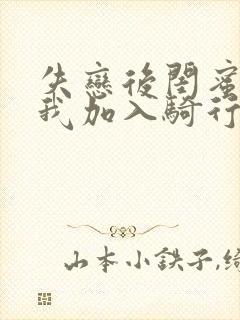 失戀後閨蜜
我加入騎行
山本小鉄子,綺